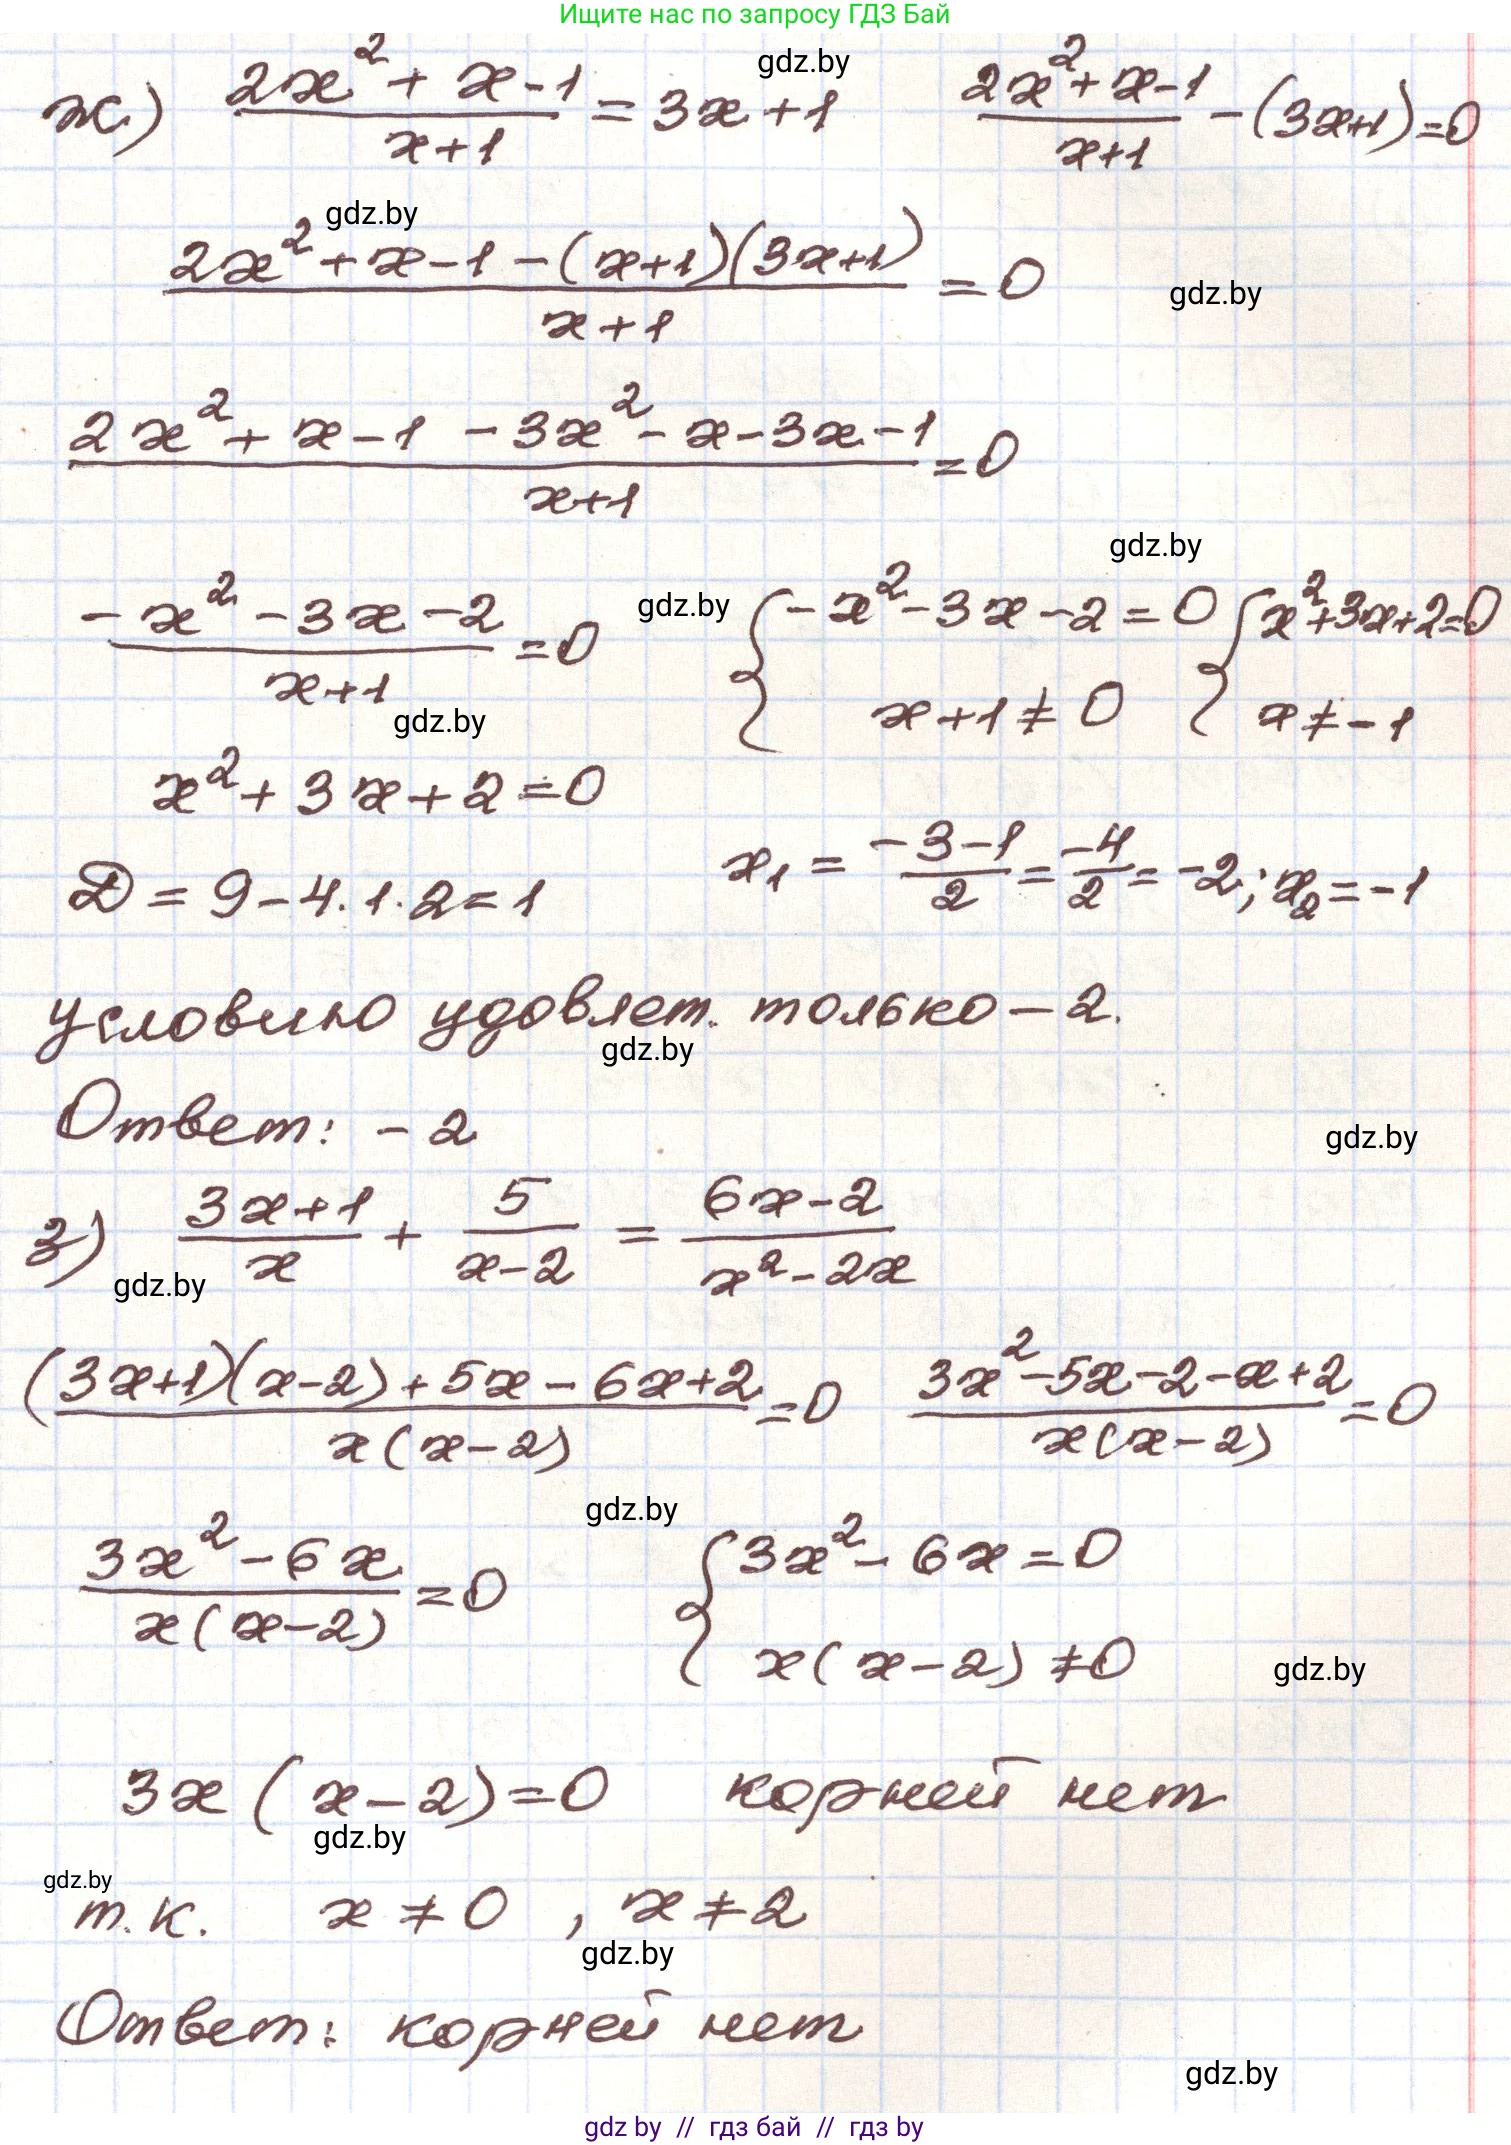 Ищите нас по запросу ГДЗ Бай
gdz.by
ж) (2x² + x - 1)/(x+1) = 3x + 1   (2x² + x - 1)/(x+1) - (3x+1) = 0
gdz.by
(2x² + x - 1 - (x+1)(3x+1))/(x+1) = 0
gdz.by
(2x² + x - 1 - 3x² - x - 3x - 1)/(x+1) = 0
gdz.by
gdz.by
(-x² - 3x - 2)/(x+1) = 0   { -x² - 3x - 2 = 0   { x² + 3x + 2 = 0
x + 1 ≠ 0   x ≠ -1
gdz.by
x² + 3x + 2 = 0
D = 9 - 4·1·2 = 1   x₁ = (-3-1)/2 = -4/2 = -2; x₂ = -1
условию удовлет. только -2.
gdz.by
Ответ: -2
gdz.by
з) (3x+1)/x + 5/(x-2) = (6x-2)/(x²-2x)
gdz.by
((3x+1)(x-2) + 5x - 6x + 2)/(x(x-2)) = 0   (3x² - 5x - 2 - x + 2)/(x(x-2)) = 0
gdz.by
(3x² - 6x)/(x(x-2)) = 0   { 3x² - 6x = 0
x(x-2) ≠ 0
gdz.by
3x(x-2) = 0   корней нет
gdz.by
gdz.by
т.к.   x ≠ 0 , x ≠ 2
gdz.by
Ответ: корней нет
gdz.by
gdz by // гдз бай // гдз by